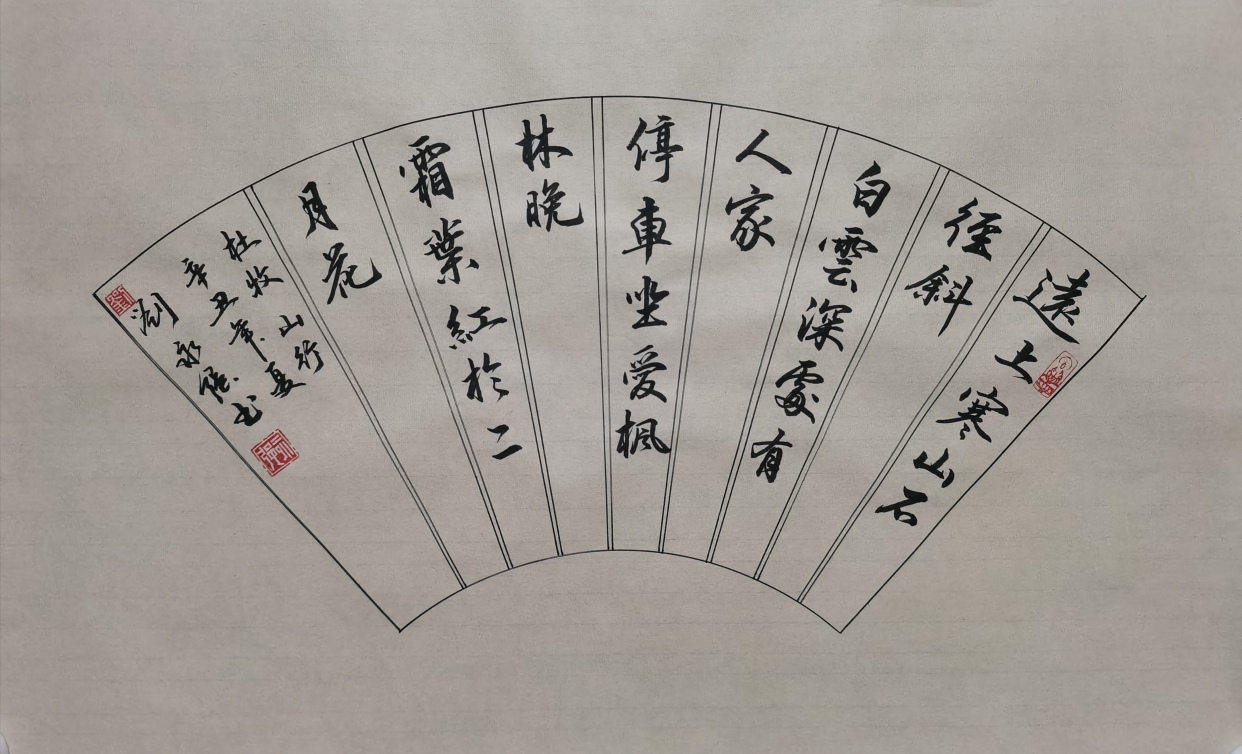 遠上寒山石
徑斜
白雲深處有
人家
停車坐愛楓
林晚
霜葉紅於二
月花
杜牧山行
辛丑年夏
劉永強书